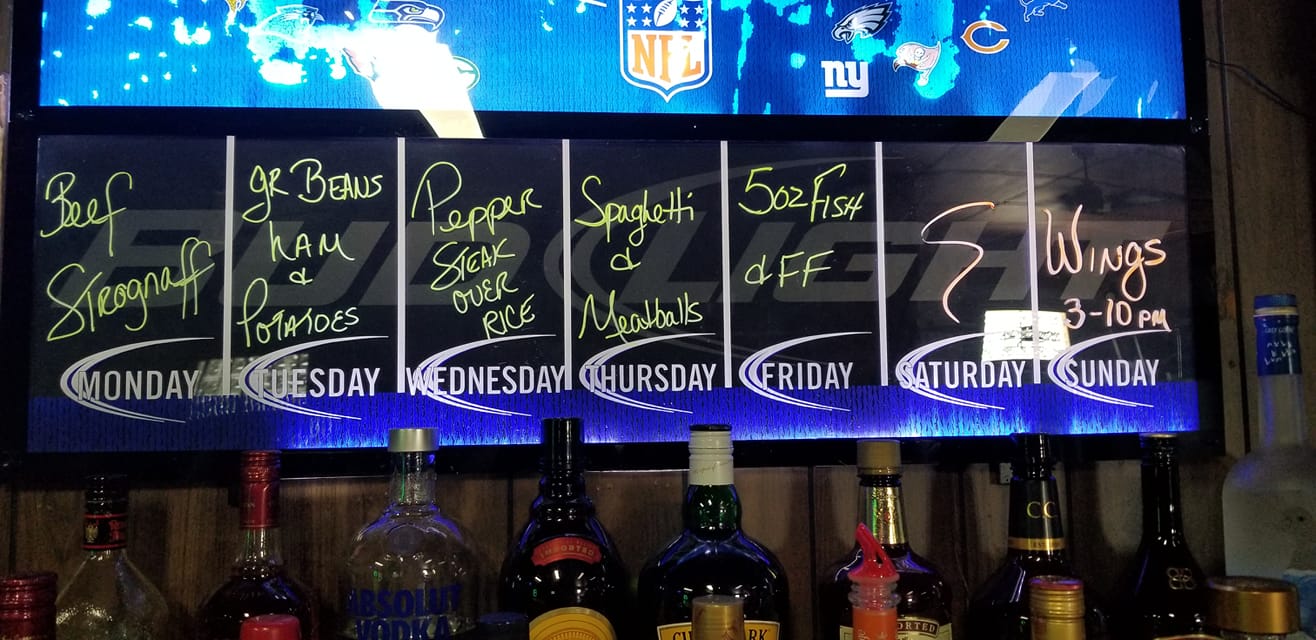 NFL
ny
Beef
Strognaff
gr BEANS
HAM
&
POTATOES
Pepper
STEAK
OVER
RICE
Spaghetti
&
Meatballs
5oz FISH
& FF
WINGS
3-10 PM
BUD LIGHT
MONDAY
TUESDAY
WEDNESDAY
THURSDAY
FRIDAY
SATURDAY
SUNDAY
ABSOLUT
VODKA
IMPORTED
CC